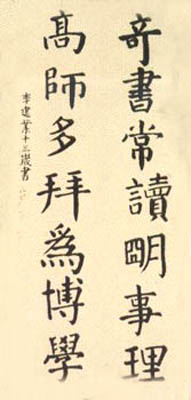 奇書常讀明事理
高師多拜為博學
李建業十三歲書